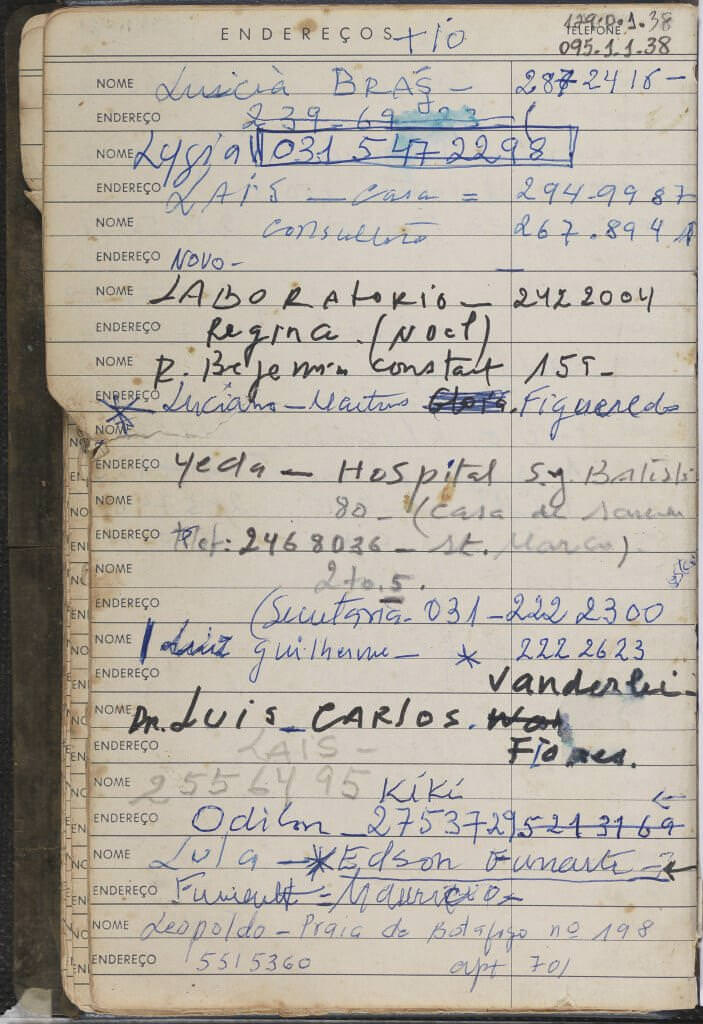 ENDEREÇOS +10
179.0.1.38
TELEFONE
095.1.1.38
NOME BRÁS — 287 2416 —
ENDEREÇO 239-69
NOME Lygia 031 547 2298
ENDEREÇO LAIS — casa = 294.9987
NOME 267.894
ENDEREÇO NOVO —
NOME LABORATORIO — 242 2004
ENDEREÇO Regina. (Noel)
NOME R. Bejemin constant 155 —
ENDEREÇO Luciano — Martins Gloria. Figueredo
NOME
ENDEREÇO Yeda — Hospital S.y. Batista
NOME 80 — (casa de
ENDEREÇO Telef: 2468036 — St. Marco).
NOME 2 to. 5.
ENDEREÇO (Secretaria. 031 — 222 2300
NOME Luiz Guilherme — * 222 2623
ENDEREÇO Vanderlei —
NOME Dr. LUIS — CARLOS.
ENDEREÇO LAIS — Flores.
NOME 2556495 KÍKÍ
ENDEREÇO Odilon — 2753729 5213169
NOME Lula — * Edson Funarte =
ENDEREÇO = Mauricio =
NOME Leopoldo — Praia de Botafogo nº 198
ENDEREÇO 5515360 apt 701